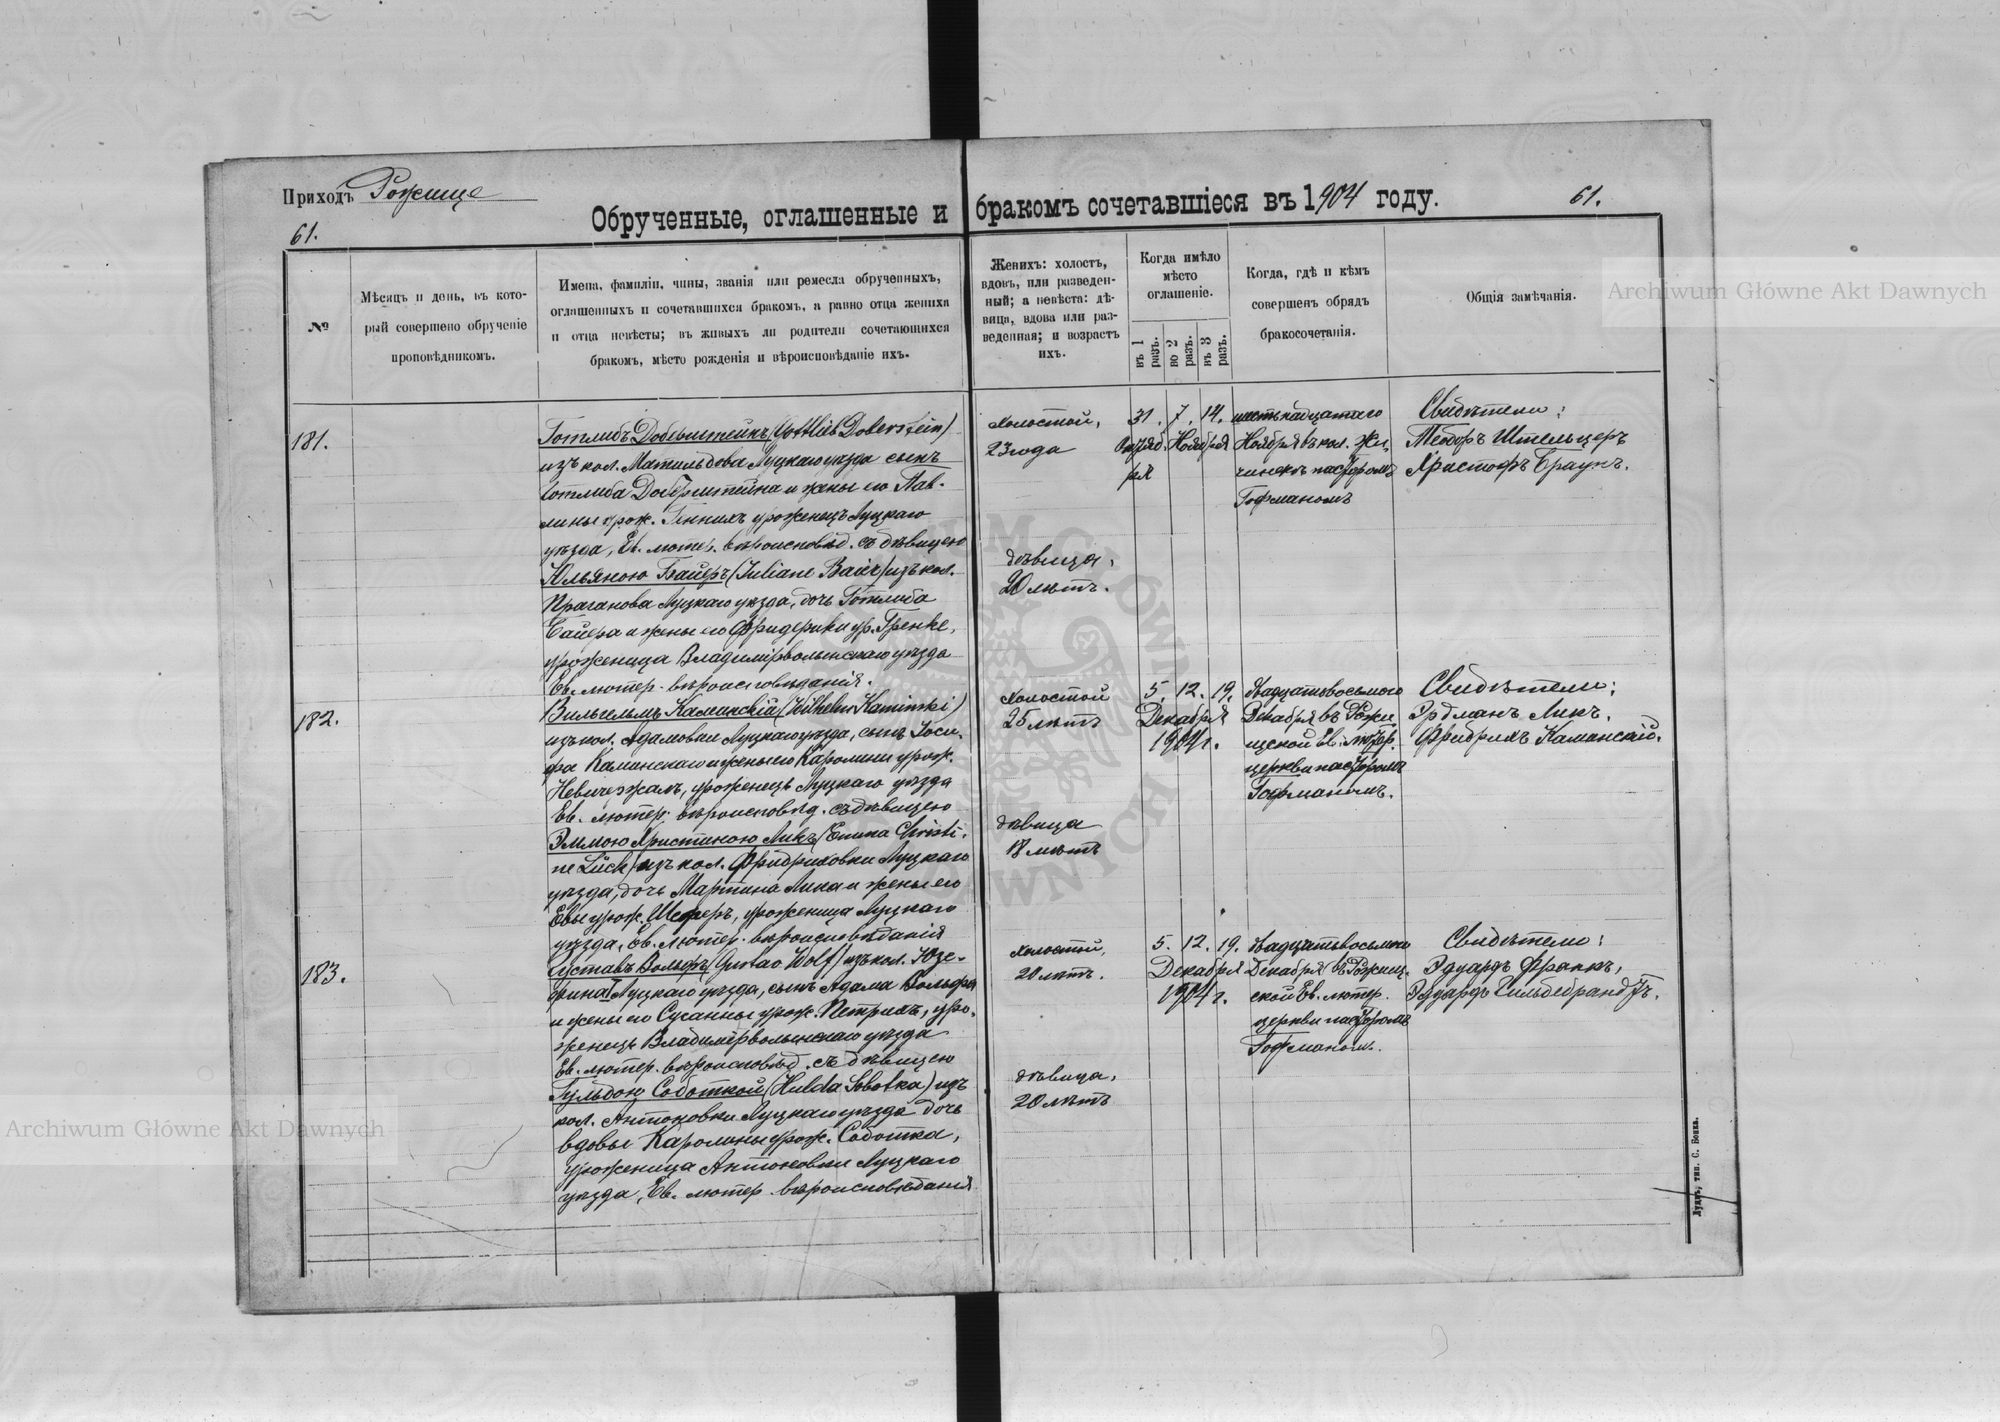 Приходъ Рожище
Обрученные, оглашенные и бракомъ сочетавшіеся въ 1904 году.
61.
61.
№
Мѣсяцъ и день, въ кото-
рый совершено обрученіе
проповѣдникомъ.
Имена, фамиліи, чины, званія или ремесла обрученныхъ,
оглашенныхъ и сочетавшихся бракомъ, а равно отца жениха
и отца невѣсты; въ живыхъ ли родители сочетающихся
бракомъ, мѣсто рожденія и вѣроисповѣданіе ихъ.
Женихъ: холостъ,
вдовъ, или разведен-
ный; а невѣста: дѣ-
вица, вдова или раз-
веденная; и возрастъ
ихъ.
Когда имѣло
мѣсто
оглашеніе.
въ 1 разъ.
во 2 разъ.
въ 3 разъ.
Когда, гдѣ и кѣмъ
совершенъ обрядъ
бракосочетанія.
Общія замѣчанія.
181.
Готлибъ Доберштейнъ (Gottlieb Doberstein)
изъ кол. Матильдова Луцкаго уѣзда сынъ
Готлиба Доберштейна и жены его Пав-
лины урож. уроженецъ Луцкаго
уѣзда, Ев. лютер. вѣроисповѣд. съ дѣвицею
Юльяною Байеръ (Juliane Baier) изъ кол.
Луцкаго уѣзда, дочь Готлиба
Байера и жены его Фридерики ур. Гренке,
уроженица Владимірволынскаго уѣзда
Ев. лютер. вѣроисповѣданія.
холостой,
23 года
дѣвица,
20 лѣтъ.
31. 7. 14.
Октяб- Ноября
ря
шестьнадцатаго
Ноября въ кол. Жи-
пасторомъ
Гофманомъ
Свидѣтели:
Теодоръ Штельцеръ
Христофъ Браунъ.
182.
Вильгельмъ Каминскій (Wilhelm Kaminski)
изъ кол. Адамовки Луцкаго уѣзда, сынъ Іоси-
фа Каминскаго и жены его Каролины урож.
уроженецъ Луцкаго уѣзда
Ев. лютер. вѣроисповѣд. съ дѣвицею
Эммою Христиною Ликъ (Emma Christi-
ne Lück) изъ кол. Фридриховки Луцкаго
уѣзда, дочь Мартина Лика и жены его
Евы урож. Шеферъ, уроженица Луцкаго
уѣзда, Ев. лютер. вѣроисповѣданія
холостой
25 лѣтъ
дѣвица
18 лѣтъ
5. 12. 19.
Декабря
1904 г.
двадцатьвосьмого
Декабря въ Рожи-
щской Ев. лютер.
церкви пасторомъ
Гофманомъ.
Свидѣтели:
Эрдманъ Ликъ,
Фридрихъ Каминскій.
183.
Густавъ Вольфъ (Gustav Wolf) изъ кол. Юзе-
фина Луцкаго уѣзда, сынъ Адама Вольфа
и жены его Сусанны урож. Петрихъ, уро-
женецъ Владимірволынскаго уѣзда
Ев. лютер. вѣроисповѣд. съ дѣвицею
Гульдою Соботкой (Hulda Sobotka) изъ
кол. Антоновки Луцкаго уѣзда дочь
вдовы Каролины урож. Соботка,
уроженица Антоновки Луцкаго
уѣзда, Ев. лютер. вѣроисповѣданія
холостой,
20 лѣтъ.
дѣвица,
20 лѣтъ
5. 12. 19.
Декабря
1904 г.
двадцатьвосьмого
Декабря въ Рожищ-
ской Ев. лютер.
церкви пасторомъ
Гофманомъ.
Свидѣтели:
Эдуардъ Франкъ,
Эдуардъ Гильдебрандтъ.
Луцкъ, тип. С. Бонка.
Archiwum Główne Akt Dawnych
Archiwum Główne Akt Dawnych